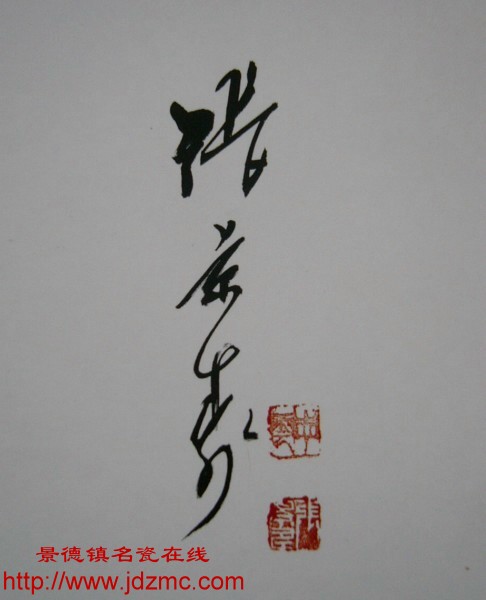 张景寿
景德镇名瓷在线
http://www.jdzmc.com/